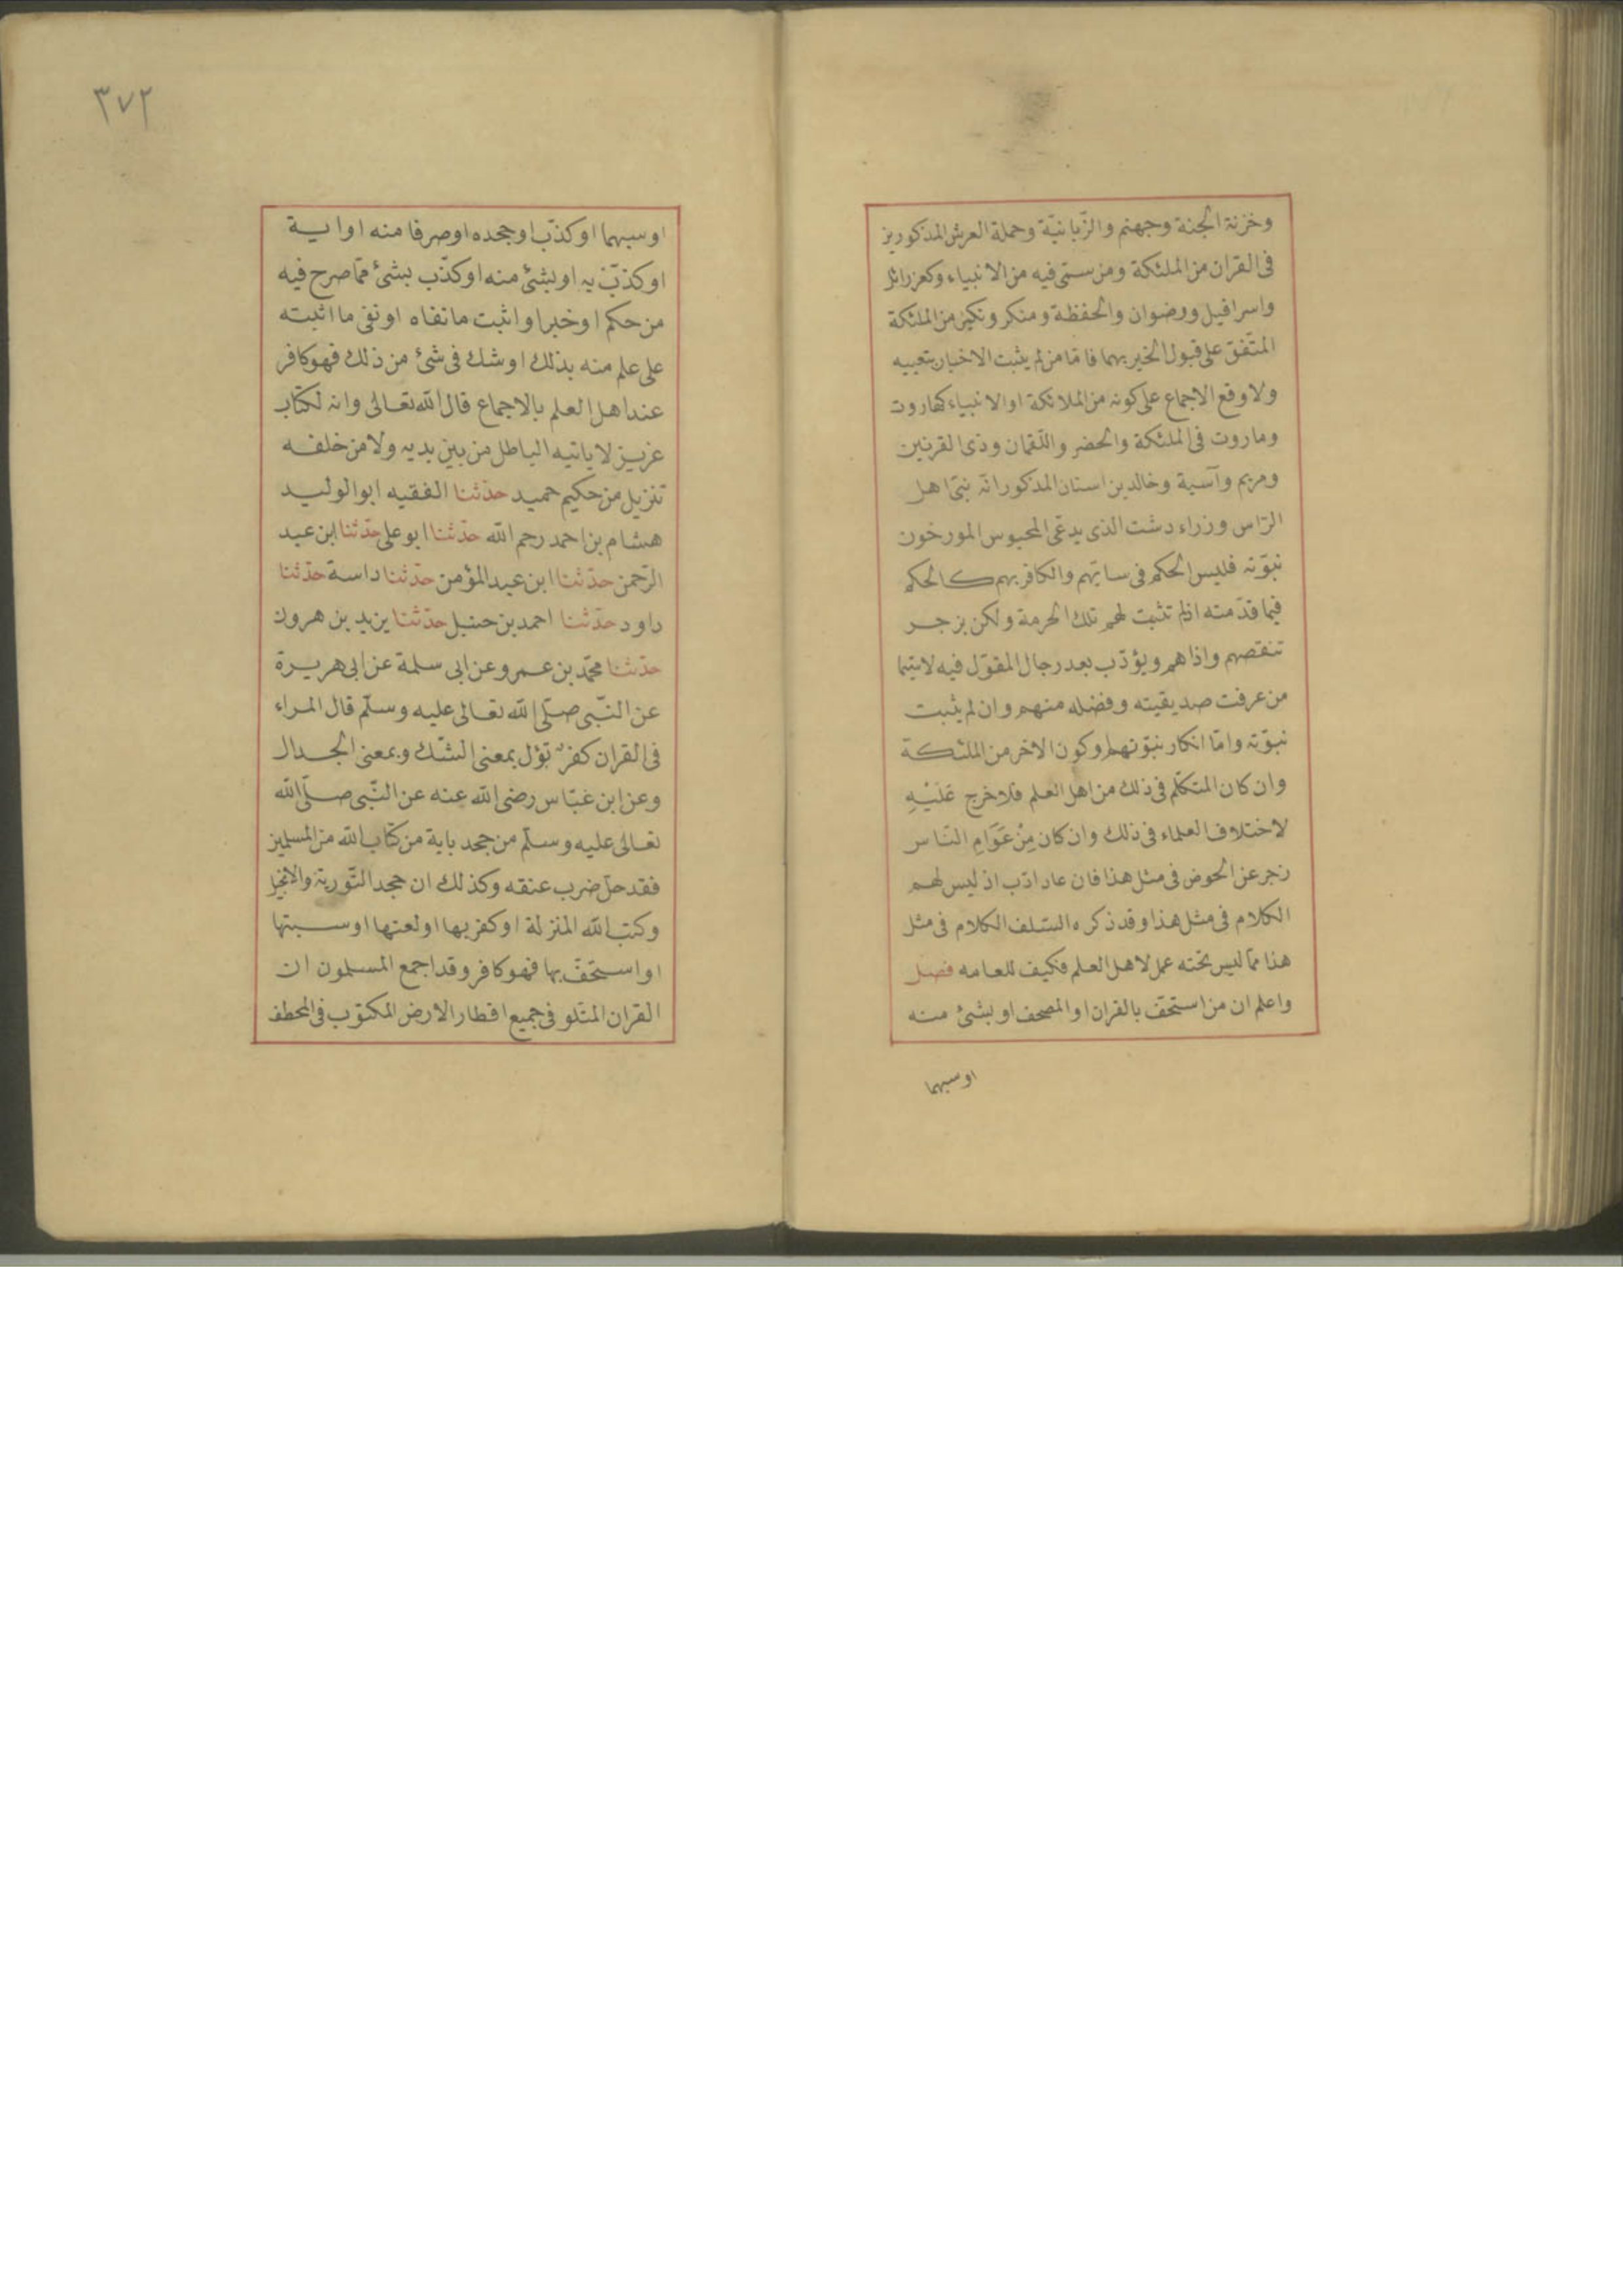 وخزنة الجنة وجهنم والزّبانيّة وحملة العرش المذكورين
فى القران من الملئكة ومن ستمى فيه من الانبياء وكعزرائل
واسرافيل ورضوان والحفظة ومنكر ونكير من الملئكة
المتّفق على قبول الخبر بهما فامّا من لم يثبت الاخبار بتعيبه
ولا وقع الاجماع على كونه من الملائكة او الانبياء كهاروت
وماروت فى الملئكة والحضر واللّقمان وذى القرنين
ومريم وآسية وخالد بن اسنان المذكور انّه نبىّ اهل
الرّاس وزراء دشت الذى يدعّى المحبوس المورخون
نبوّته فليس الحكم فى سابّهم والكافر بهم كالحكم
فيما قدّمته اذ لم تثبت لهم تلك الحرمة ولكن يزجر
تنقصهم واذاهم ويؤدّب بعدر جال المقوّل فيه لاسيّما
من عرفت صديقيته وفضله منهم وان لم يثبت
نبوّته وامّا انكار نبوّتهم اوكون الاخر من الملئكة
وان كان المتكلّم فى ذلك من اهل العلم فلا خرج عَلَيْهِ
لاختلاف العلماء فى ذلك وان كان مِنْ عَوَامِ النّاس
زجر عن الحوض فى مثل هذا فان عاد ادّب اذ ليس لهم
الكلام فى مثل هذا وقد ذكره السّلف الكلام فى مثل
هذا ممّا ليس تحته عمل لاهل العلم فكيف للعامه فصل
واعلم ان من استحقّ بالقران او المصحف او بشئ منه
او سبهما
٣٧٢
او سبهما او كذّب او جحده او صرفا منه او اية
او كذّب به او بشئ منه او كذّب بشئ ممّا صرح فيه
من حكم او خبر او اثبت ما نفاه او نفى ما اثبته
على علم منه بذلك او شك فى شئ من ذلك فهو كافر
عند اهل العلم بالاجماع قال الله تعالى وانه لكتاب
عزيز لا ياتيه الباطل من بين يديه ولا من خلفه
تنزيل من حكيم حميد حدّثنا الفقيه ابو الوليد
هشام بن احمد رحم الله حدّثنا ابو على حدّثنا ابن عبد
الرّحمن حدّثنا ابن عبد المؤمن حدّثنا داسة حدّثنا
داود حدّثنا احمد بن حنبل حدّثنا يزيد بن هرون
حدّثنا محمّد بن عمرو عن ابى سلمة عن ابى هريرة
عن النّبى صلّى الله تعالى عليه وسلّم قال المراء
فى القران كفرٌ تؤل بمعنى الشّك وبمعنى الجدال
وعن ابن عبّاس رضى الله عنه عن النّبى صلّى الله
تعالى عليه وسلّم من جحد باية من كتاب الله من المسلمين
فقد حلّ ضرب عنقه وكذلك ان جحد التّورية والانجيل
وكتب الله المنزلة او كفر بها او لعنها او سبتها
او استحفّ بها فهو كافر وقد اجمع المسلمون ان
القران المتلو فى جميع اقطار الارض المكتوب فى